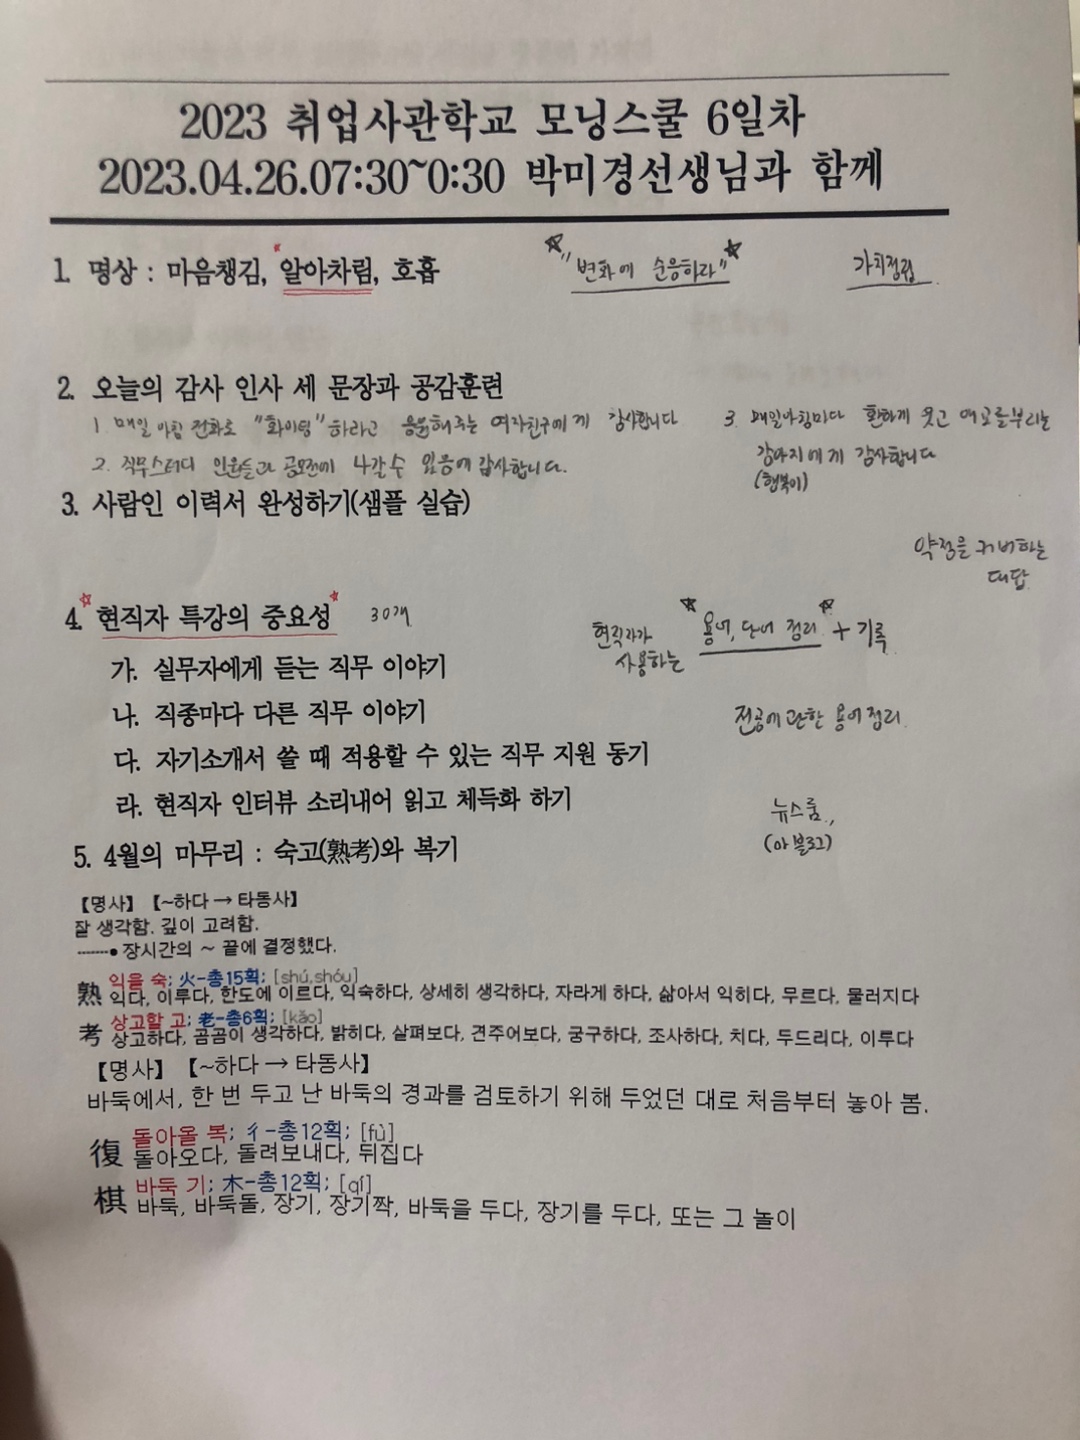 2023 취업사관학교 모닝스쿨 6일차
2023.04.26.07:30~0:30 박미경선생님과 함께
1. 명상 : 마음챙김, 알아차림, 호흡
"변화에 순응하라"
가치정립
2. 오늘의 감사 인사 세 문장과 공감훈련
1. 매일 아침 전화로 "화이팅"하라고 응원해주는 여자친구에게 감사합니다
2. 직무스터디 인원들과 공모전에 나갈수 있음에 감사합니다.
3. 매일아침마다 환하게 웃고 애교를부리는
강아지에게 감사합니다
(행복이)
3. 사람인 이력서 완성하기(샘플 실습)
약점을 커버하는
대답
4. 현직자 특강의 중요성 30개
현직자가
사용하는
용어, 단어 정리 + 기록
가. 실무자에게 듣는 직무 이야기
나. 직종마다 다른 직무 이야기
전공에 관한 용어정리
다. 자기소개서 쓸 때 적용할 수 있는 직무 지원 동기
라. 현직자 인터뷰 소리내어 읽고 체득화 하기
뉴스룸,
5. 4월의 마무리 : 숙고(熟考)와 복기
【명사】【~하다 → 타동사】
잘 생각함. 깊이 고려함.
장시간의 ~ 끝에 결정했다.
熟 익을 숙; 火-총15획; [shú,shóu]
익다, 이루다, 한도에 이르다, 익숙하다, 상세히 생각하다, 자라게 하다, 삶아서 익히다, 무르다, 물러지다
考 상고할 고; 老-총6획; [kǎo]
상고하다, 곰곰이 생각하다, 밝히다, 살펴보다, 견주어보다, 궁구하다, 조사하다, 치다, 두드리다, 이루다
【명사】【~하다 → 타동사】
바둑에서, 한 번 두고 난 바둑의 경과를 검토하기 위해 두었던 대로 처음부터 놓아 봄.
復 돌아올 복; 彳-총12획; [fù]
돌아오다, 돌려보내다, 뒤집다
棋 바둑 기; 木-총12획; [qí]
바둑, 바둑돌, 장기, 장기짝, 바둑을 두다, 장기를 두다, 또는 그 놀이